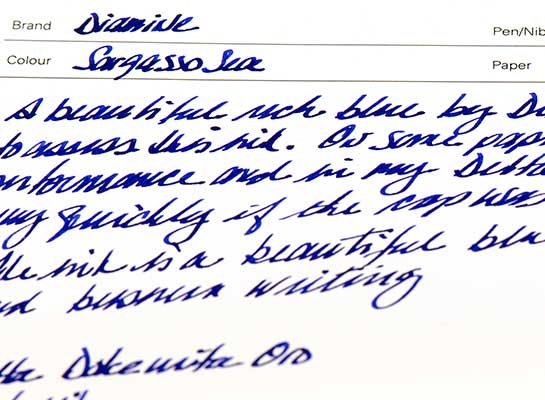 Brand Diamine Pen/Nib
Colour Sargasso Sea Paper
A beautiful rich blue by Di
to assess this ink. On some pap
onformance and in my Delta
quickly if the cap was
ink is a beautiful blu
business writing
Dolcevita Oro